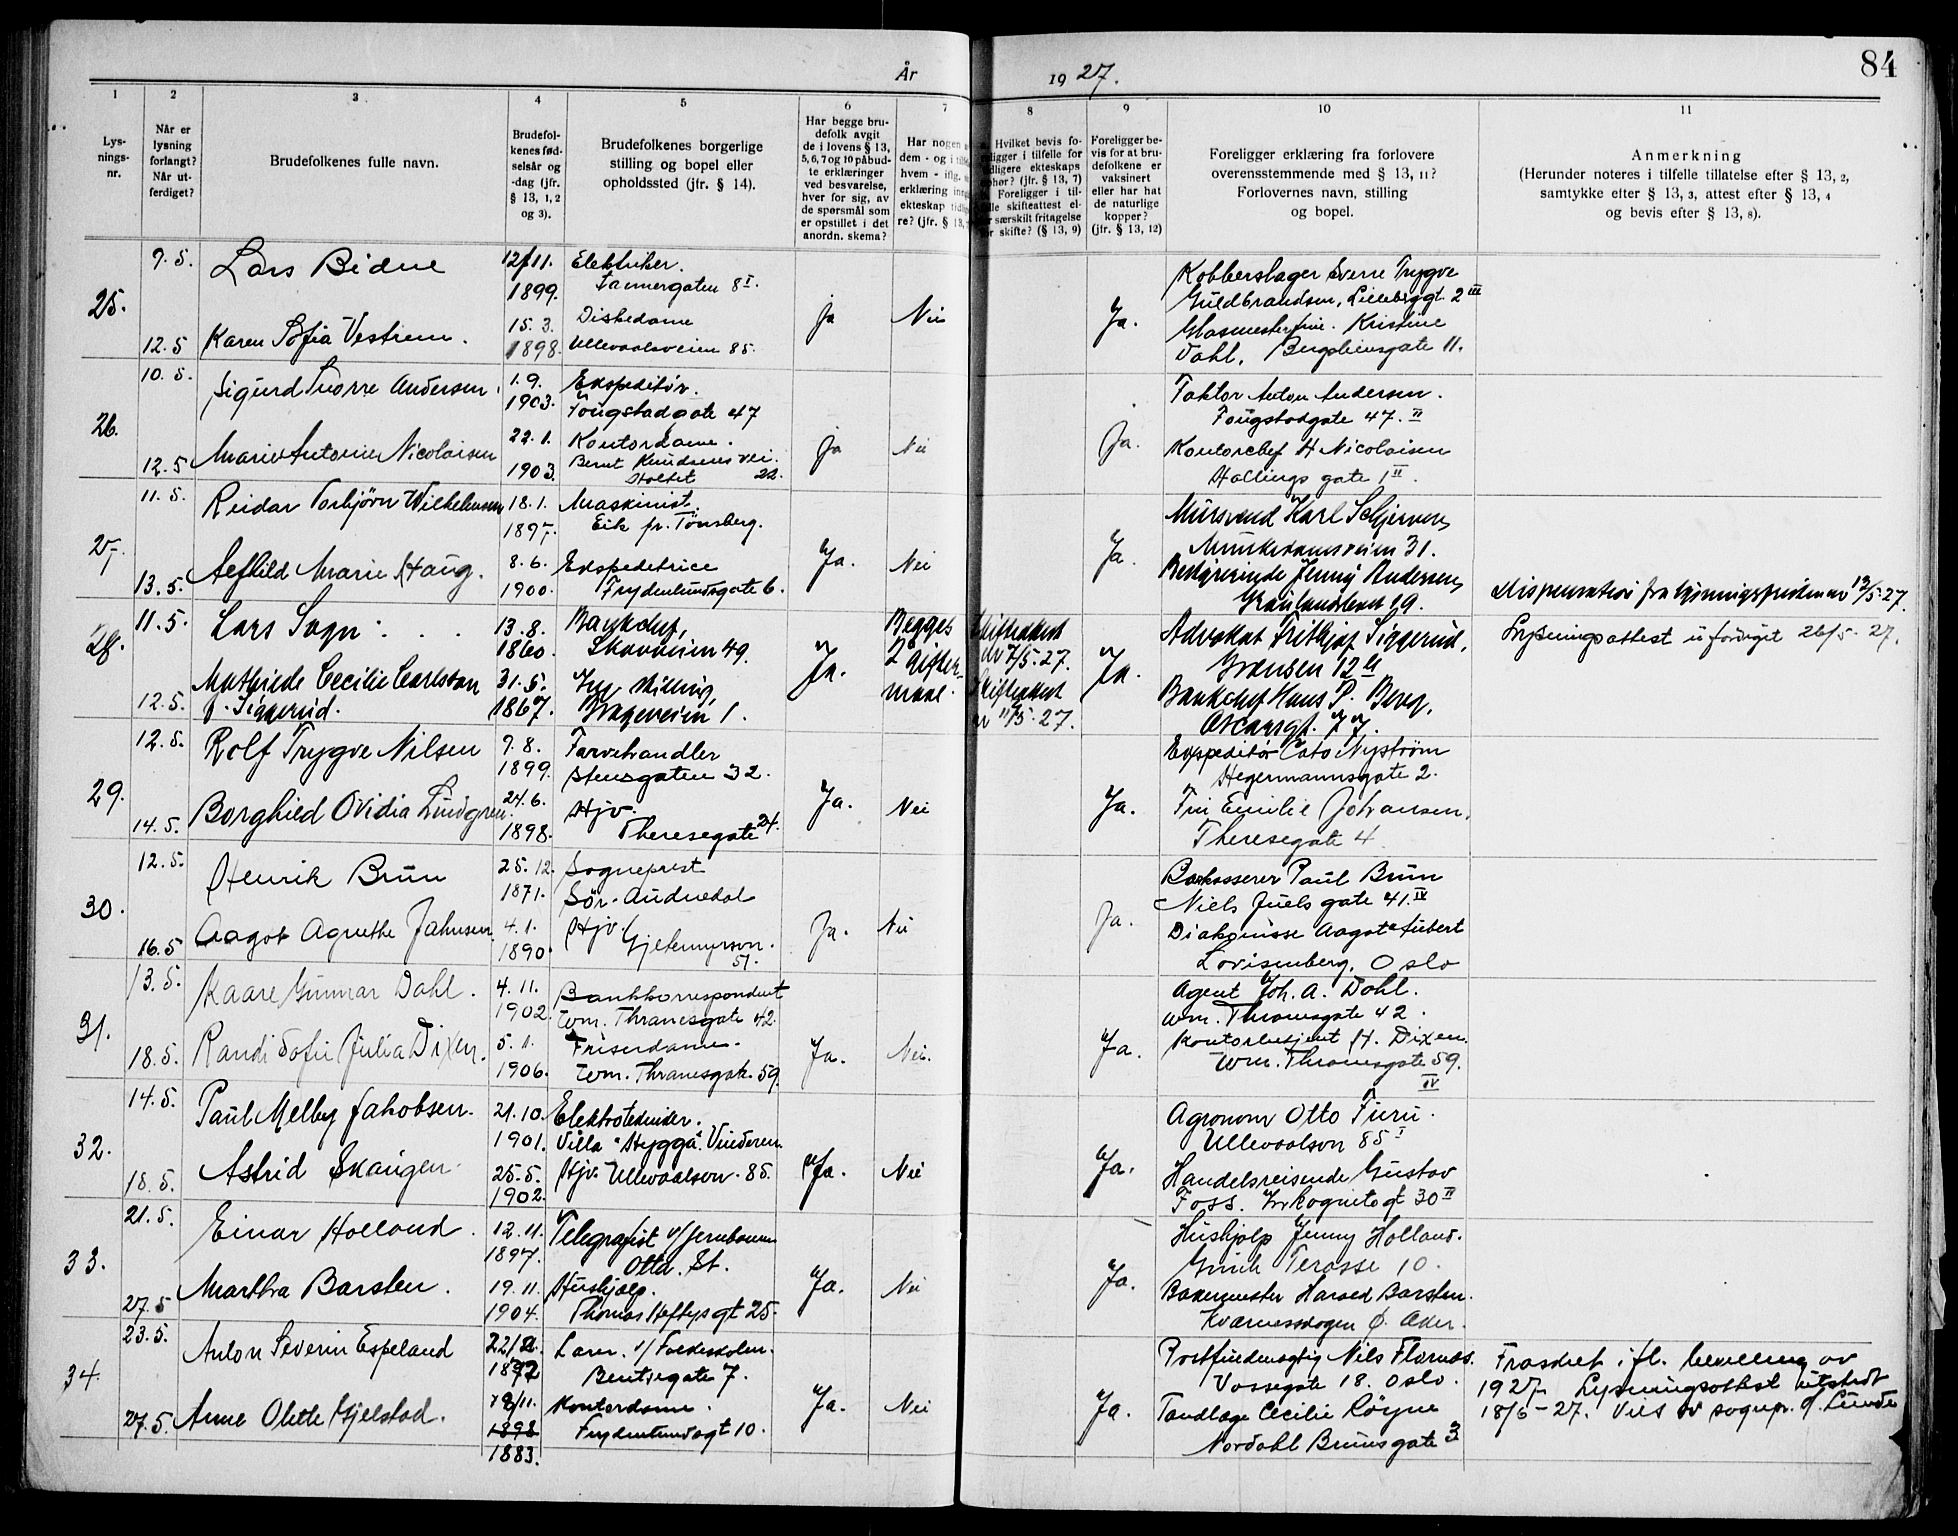 84
År 1927.
1 2 3 4 5 6 7 8 9 10 11
Lysningsnr.
Når er lysning forlangt? Når utferdiget?
Brudefolkenes fulle navn.
Brudefolkenes fødselsår og -dag (jfr. § 13, 1, 2 og 3).
Brudefolkenes borgerlige stilling og bopel eller opholdssted (jfr. § 14).
Har begge brudefolk avgit de i lovens § 13, 5, 6, 7 og 10 påbudte erklæringer ved besvarelse, hver for sig, av de spørsmål som er opstillet i det anordn. skema?
Har nogen
dem - og i
hvem - iflg.
erklæring
ekteskap
re? (jfr. § 13,
Hvilket bevis fo-
religger i tilfelle for
tidligere ekteskaps
ophør? (jfr. § 13, 7)
Foreligger i til-
felle skifteattest el-
særskilt fritagelse
for skifte? (§ 13, 9)
Foreligger bevis for at brudefolkene er vaksinert eller har hat de naturlige kopper? (jfr. § 13, 12)
Foreligger erklæring fra forlovere overensstemmende med § 13, 11? Forlovernes navn, stilling og bopel.
Anmerkning
(Herunder noteres i tilfelle tillatelse efter § 13, 2, samtykke efter § 13, 3, attest efter § 13, 4 og bevis efter § 13, 8).
25.
9.5.
Lars Bidne
12/11.
1899.
Elektriker.
Fannergaten 8 I.
12.5
Karen Sofia Vestrem.
15.3.
1898.
Diskedame
Ullevaalsveien 85.
Ja
Nei
Ja.
Kobberslager Sverre Trygve
Guldbrandsen, 2 III
Glasmesterfrue. Kristine
Dahl, Bergsliensgate 11.
26.
10.5.
Sigurd Snorre Andersen.
1.9.
1903.
Ekspeditør.
Fougstadgate 47
12.5
Marie Antonie Nicolaisen
22.1.
1903.
Kontordame.
Bernt Knudsens vei.
Holtet 22.
Ja
Nei
Ja.
Faktor Anton Andersen.
Fougstadgate 47. II
Kontorchef H Nicolaisen
Hallings gate 1 II.
27.
11.5.
Reidar Torbjørn Wilhelmsen
18.1.
1897.
Maskinist.
Eik pr. Tønsberg.
13.5.
Alfhild Marie Haug.
8.6.
1900.
Ekspeditrice
Frydenlundsgate 6.
Ja.
Nei
Ja.
Mursvend Karl Schjerven,
Munkedamsveien 31.
Bestyrerinde Jenny Andersen,
Grønlandsleret 19.
Dispensation fra lysningsfristen av 13/5.27.
28.
11.5.
Lars Sogn
13.8.
1860.
Bankchef,
Skovveien 49.
12.5.
Mathilde Cecilie Carlsson
f. Siggerud.
31.5.
1867.
Ing. stilling,
Ja.
Begges
2 gifter-
maal.
Skifteattest
av 7/5.27.
Skifteattest
av 11/5.27.
Ja.
Advokat Frithjof Siggerud,
Grænsen 12
Bankchef Hans P. Berg,
Oscarsgt. 77.
Lysningsattest utferdiget 26/5.27.
29.
12.5.
Rolf Trygve Nilsen
9.8.
1899.
Farvehandler
Stensgaten 32.
14.5.
Borghild Ovidia Lindgren.
24.6.
1898.
Hjv.
Theresegate 24.
Ja.
Nei
Ja.
Expeditør Cato Nystrøm
Hegermannsgate 2.
Fru Emilie Johansen.
Theresegate 4.
30.
12.5.
Henrik Brun
25.12.
1871.
Sogneprest
Sør-Audnedal
16.5
Aagot Agnethe Jahnsen
4.1.
1890.
Hjv.
51.
Ja.
Nei
Ja.
Paul Brun
Niels Juels gate 41. IV
Diakonisse Aagot Aubert
Lovisenberg, Oslo
31.
13.5.
Kaare Gunnar Dahl.
4.11.
1902.
Bankkorrespondent
Wm. Thranesgate 42.
18.5.
Randi Sofie Julia Dixen.
5.1.
1906.
Friserdame.
Wm. Thranesgate. 59.
Ja.
Nei.
Ja.
Agent Joh. A. Dahl.
Wm. Thranesgate 42.
Kontorbetjent H. Dixen.
Wm. Thranesgate 59.
IV
32.
14.5.
Paul Melby Jakobsen.
21.10.
1901.
Elektrotekniker.
Villa "Hygga". Vinderen
18.5.
Astrid Skaugen.
25.5.
1902.
Hjv. Ullevaalsvn. 85.
Ja.
Nei
Ja.
Agronom Otto Furu.
Ullevaalsvn 85 I
Handelsreisende Gustav
Foss. Inkognitogt 30 II
33.
21.5.
Einar Holland.
12.11.
1897.
Telegrafist v/Jernbanen
Otta. St.
27.5
Martha Barsten.
19.11.
1904.
Hushjælp.
Thomas Heftyes gt 25.
Ja.
Nei
Ja.
Hushjælp Jenny Holland.
Gimle Terasse 10.
Bakermester Harald Barsten.
Kværnesskogen Ø. Aker.
34.
23.5.
Anton Severin Espeland
22/2.
1872
Lærer. v/Folkeskolen.
Bentsegate 7.
27.5.
Anne Olette Gjelstad.
28/11.
1898
1883.
Kontordame.
Frydenlundsgt 10.
Ja.
Nei
Ja.
Postfuldmægtig Nils Flornes.
Vossegate 18. Oslo.
Tandlæge Cecilie Røyne
Nordahl Brunsgate 3
Fraskilt ifl. bevilling av
1927. Lysningsattest utstedt
18/6-27. Viet av sognepr. J. Lunde